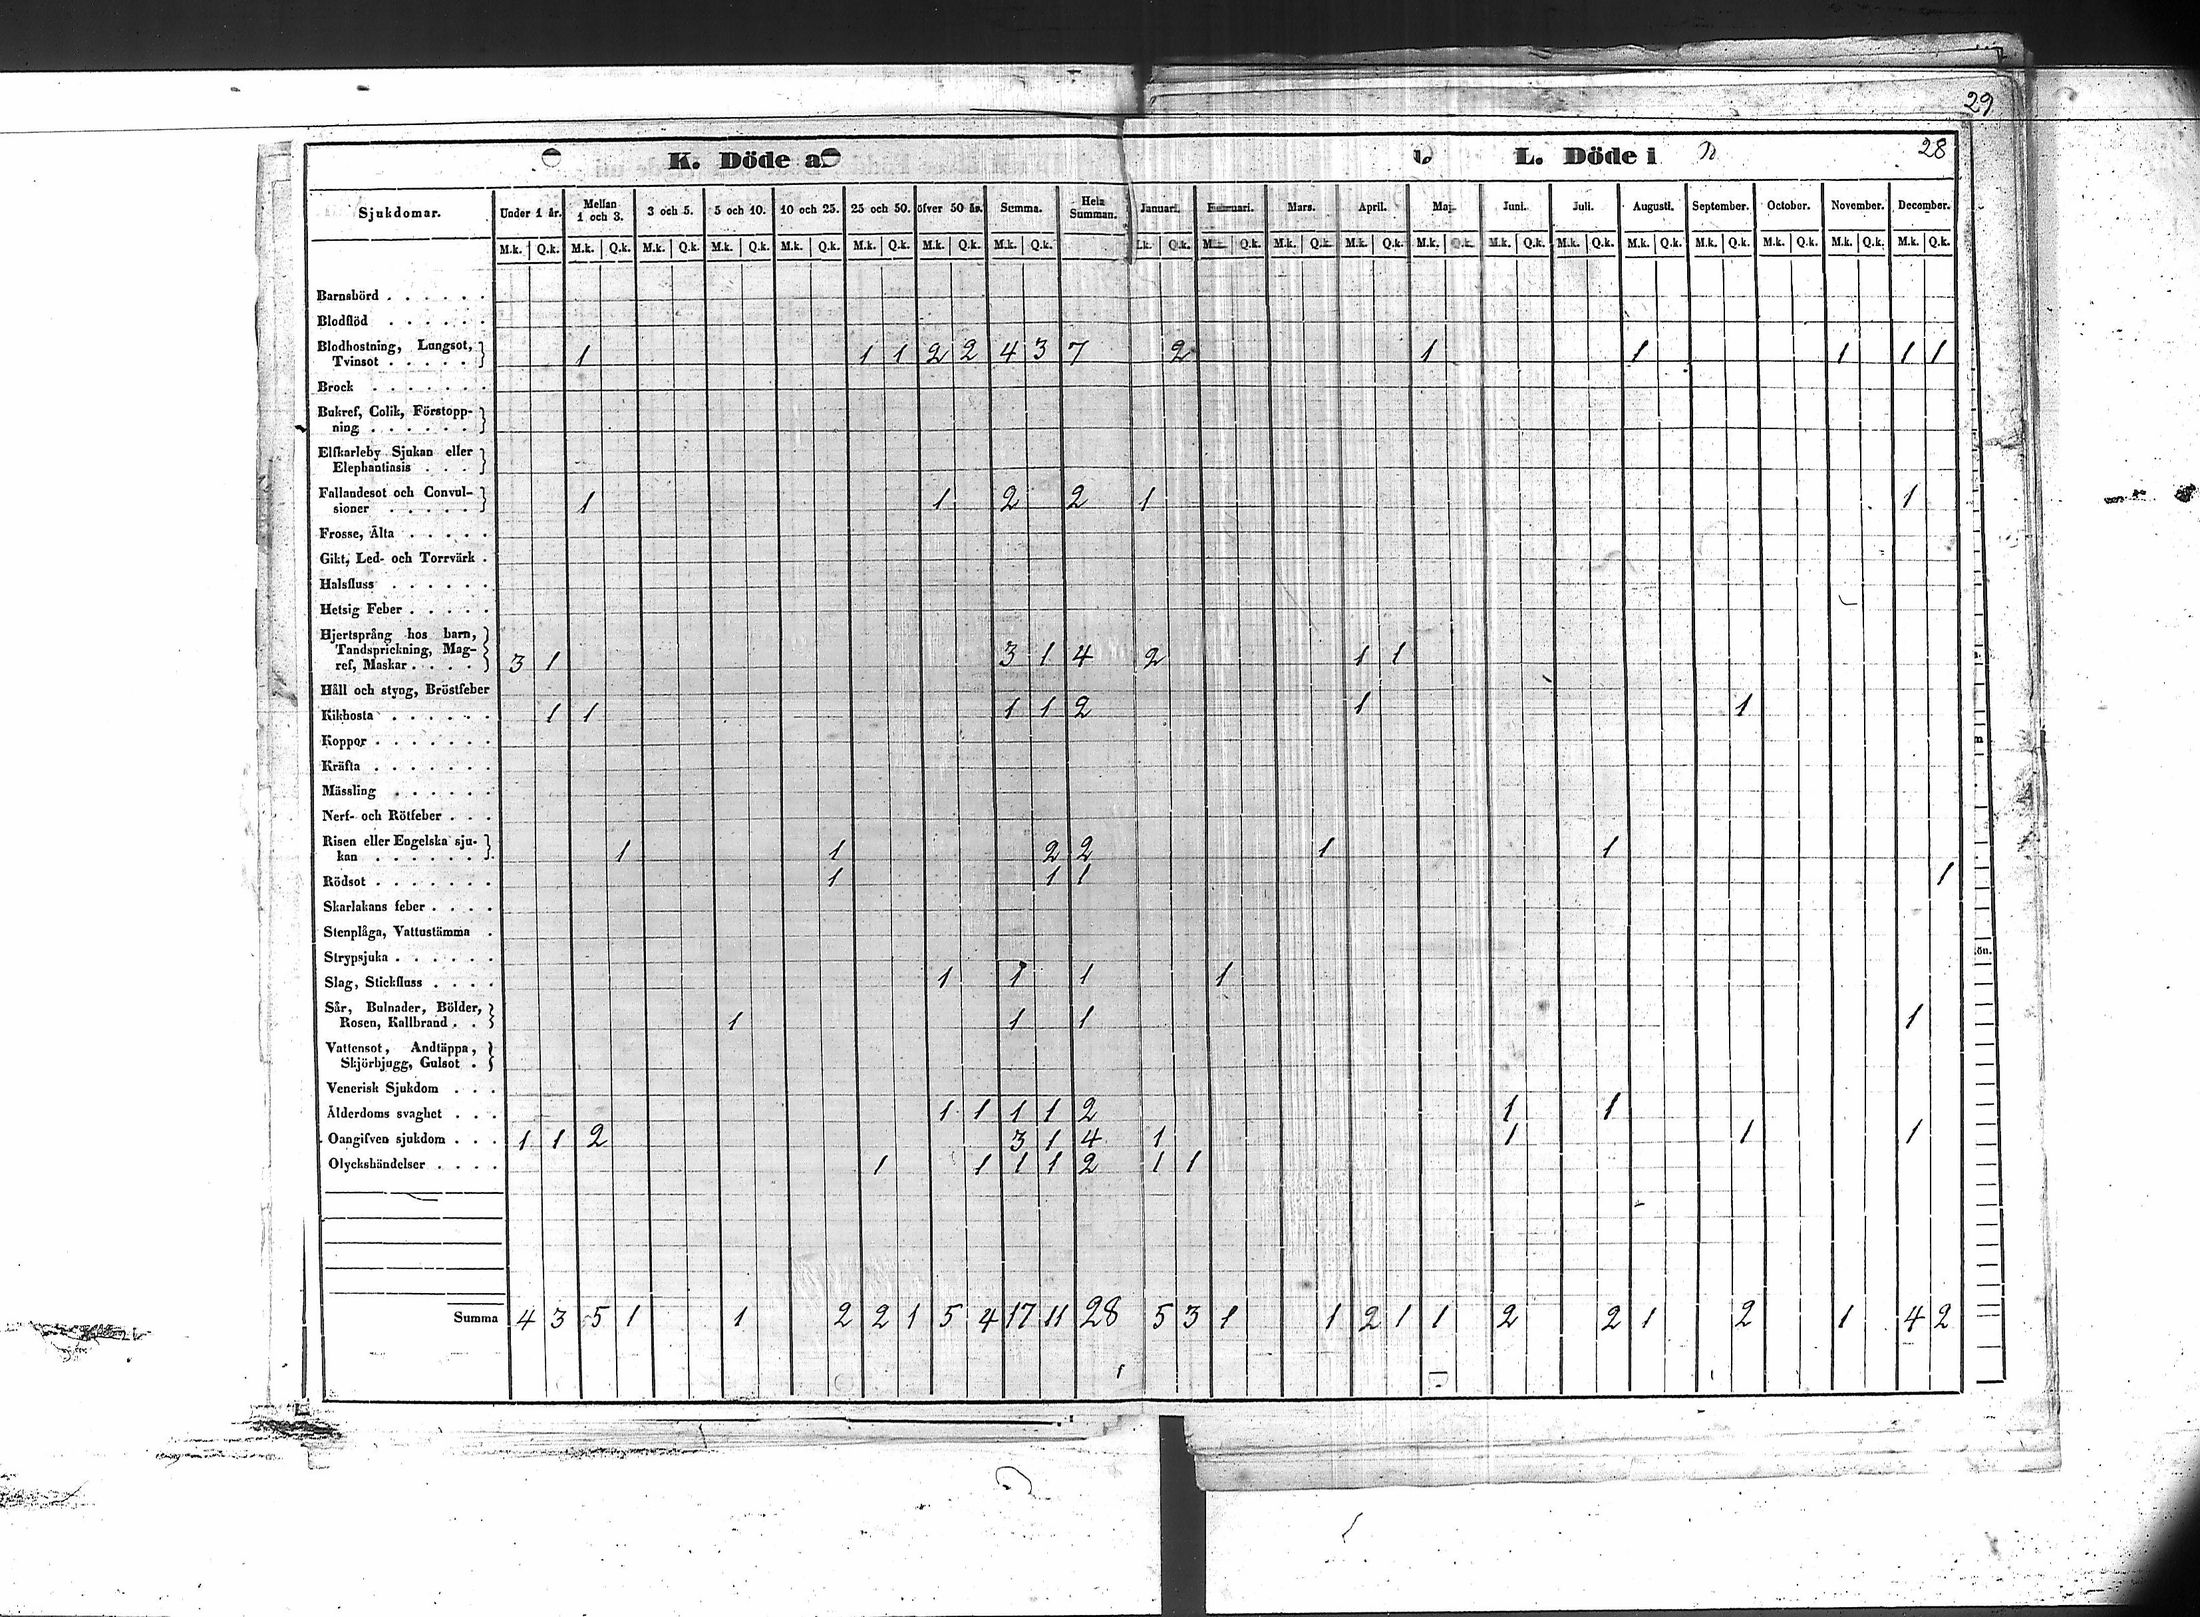 29
K. Döde a
L. Döde i
28
Sjukdomar. Under 1 år. Mellan 1 och 3. 3 och 5. 5 och 10. 10 och 25. 25 och 50. öfver 50 år. Summa. Hela Summan. Januari. Februari. Mars. April. Maj. Juni. Juli. Augusti. September. October. November. December.
M.k. Q.k. M.k. Q.k. M.k. Q.k. M.k. Q.k. M.k. Q.k. M.k. Q.k. M.k. Q.k. M.k. Q.k. .k. Q.k. M.k. Q.k. M.k. Q.k. M.k. Q.k. M.k. Q.k. M.k. Q.k. M.k. Q.k. M.k. Q.k. M.k. Q.k. M.k. Q.k. M.k. Q.k. M.k. Q.k.
Barnsbörd . . . . . .
Blodflöd . . . . . .
Blodhostning, Lungsot,
Tvinsot . . . . . 1 1 1 2 2 4 3 7 2 1 1 1 1 1
Brock . . . . . . .
Bukref, Colik, Förstopp-
ning . . . . . .
Elfkarleby Sjukan eller
Elephantiasis . . .
Fallandesot och Convul-
sioner . . . . . 1 1 2 2 1 1
Frosse, Älta . . . . .
Gikt, Led- och Torrvärk .
Halsfluss . . . . . .
Hetsig Feber . . . . .
Hjertsprång hos barn,
Tandsprickning, Mag-
ref, Maskar . . . . 3 1 3 1 4 2 1 1
Håll och styng, Bröstfeber
Kikhosta . . . . . . 1 1 1 1 2 1 1
Koppor . . . . . . .
Kräfta . . . . . . .
Mässling . . . . . .
Nerf- och Rötfeber . . .
Risen eller Engelska sju-
kan . . . . . . . 1 1 2 2 1 1
Rödsot . . . . . . . 1 1 1 1
Skarlakans feber . . . .
Stenplåga, Vattustämma .
Strypsjuka . . . . . .
Slag, Stickfluss . . . . 1 1 1 1
Sår, Bulnader, Bölder,
Rosen, Kallbrand . . 1 1 1 1
Vattensot, Andtäppa,
Skjörbjugg, Gulsot .
Venerisk Sjukdom . . .
Ålderdoms svaghet . . . 1 1 1 1 2 1 1
Oangifven sjukdom . . . 1 1 2 3 1 4 1 1 1 1
Olyckshändelser . . . . 1 1 1 1 2 1 1
Summa 4 3 5 1 1 2 2 1 5 4 17 11 28 5 3 1 1 2 1 1 2 2 1 2 1 4 2
ön.